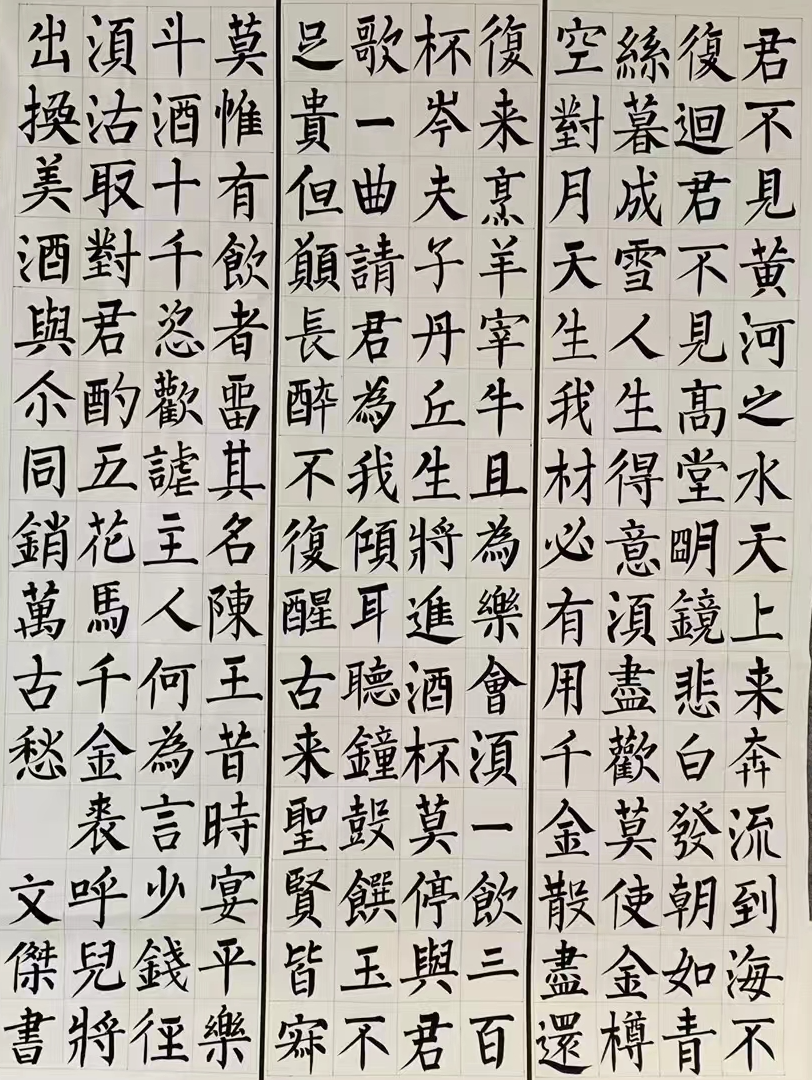 君不見黄河之水天上来奔流到海不
復迴君不見髙堂明鏡悲白發朝如青
絲暮成雪人生得意湏盡歡莫使金樽
空對月天生我材必有用千金散盡還
復来烹羊宰牛且為樂會湏一飲三百
杯岑夫子丹丘生將進酒杯莫停與君
歌一曲請君為我傾耳聽鐘鼓饌玉不
足貴但願長醉不復醒古来聖賢皆寂
莫惟有飲者留其名陳王昔時宴平樂
斗酒十千恣歡謔主人何為言少錢徑
湏沽取對君酌五花馬千金裘呼兒將
出換美酒與尒同銷萬古愁
文傑書